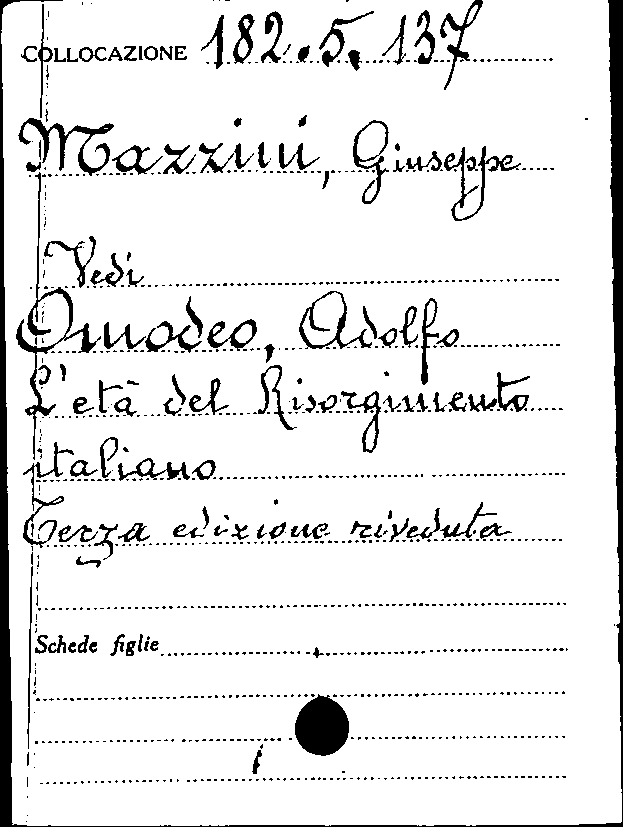 COLLOCAZIONE 182.5.137
Mazzini, Giuseppe
Vedi
Omodeo, Adolfo
L'età del Risorgimento
italiano
Terza edizione riveduta
Schede figlie